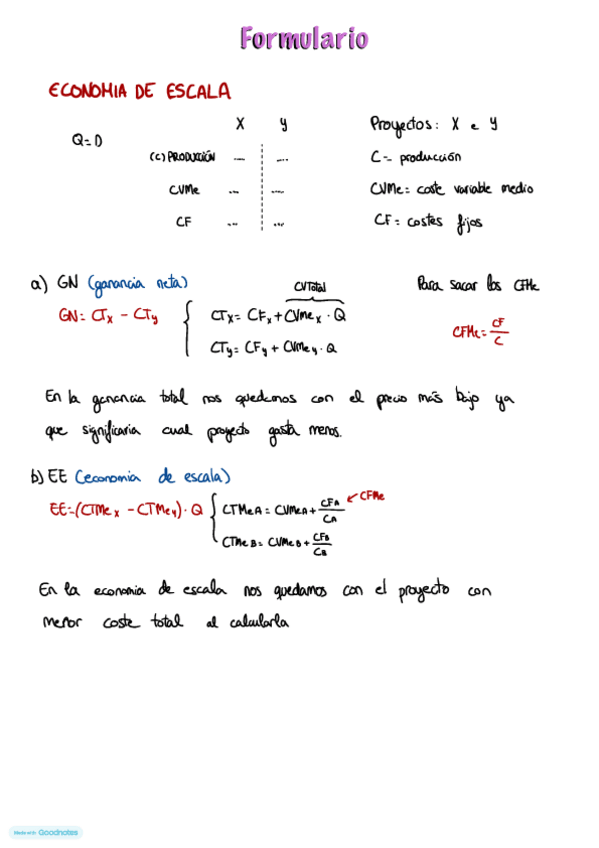 Formulario
ECONOMIA DE ESCALA
X Y Proyectos: X e Y
Q=D
(C) PRODUCCIÓN ... ... C = producción
CVMe ... ... CVMe = coste variable medio
CF ... ... CF = costes fijos
a) GN (ganancia neta) CVTotal Para sacar los CFMe
GN = CTx - CTy { CTx = CFx + CVMex · Q CFMe = CF/C
CTy = CFy + CVMey · Q
En la ganancia total nos quedamos con el precio más bajo ya
que significaria cual proyecto gasta menos.
b) EE (economia de escala)
EE = (CTMex - CTMey) · Q { CTMeA = CVMeA + CFA/CA ← CFMe
CTMeB = CVMeB + CFB/CB
En la economia de escala nos quedamos con el proyecto con
menor coste total al calcularla
Made with Goodnotes